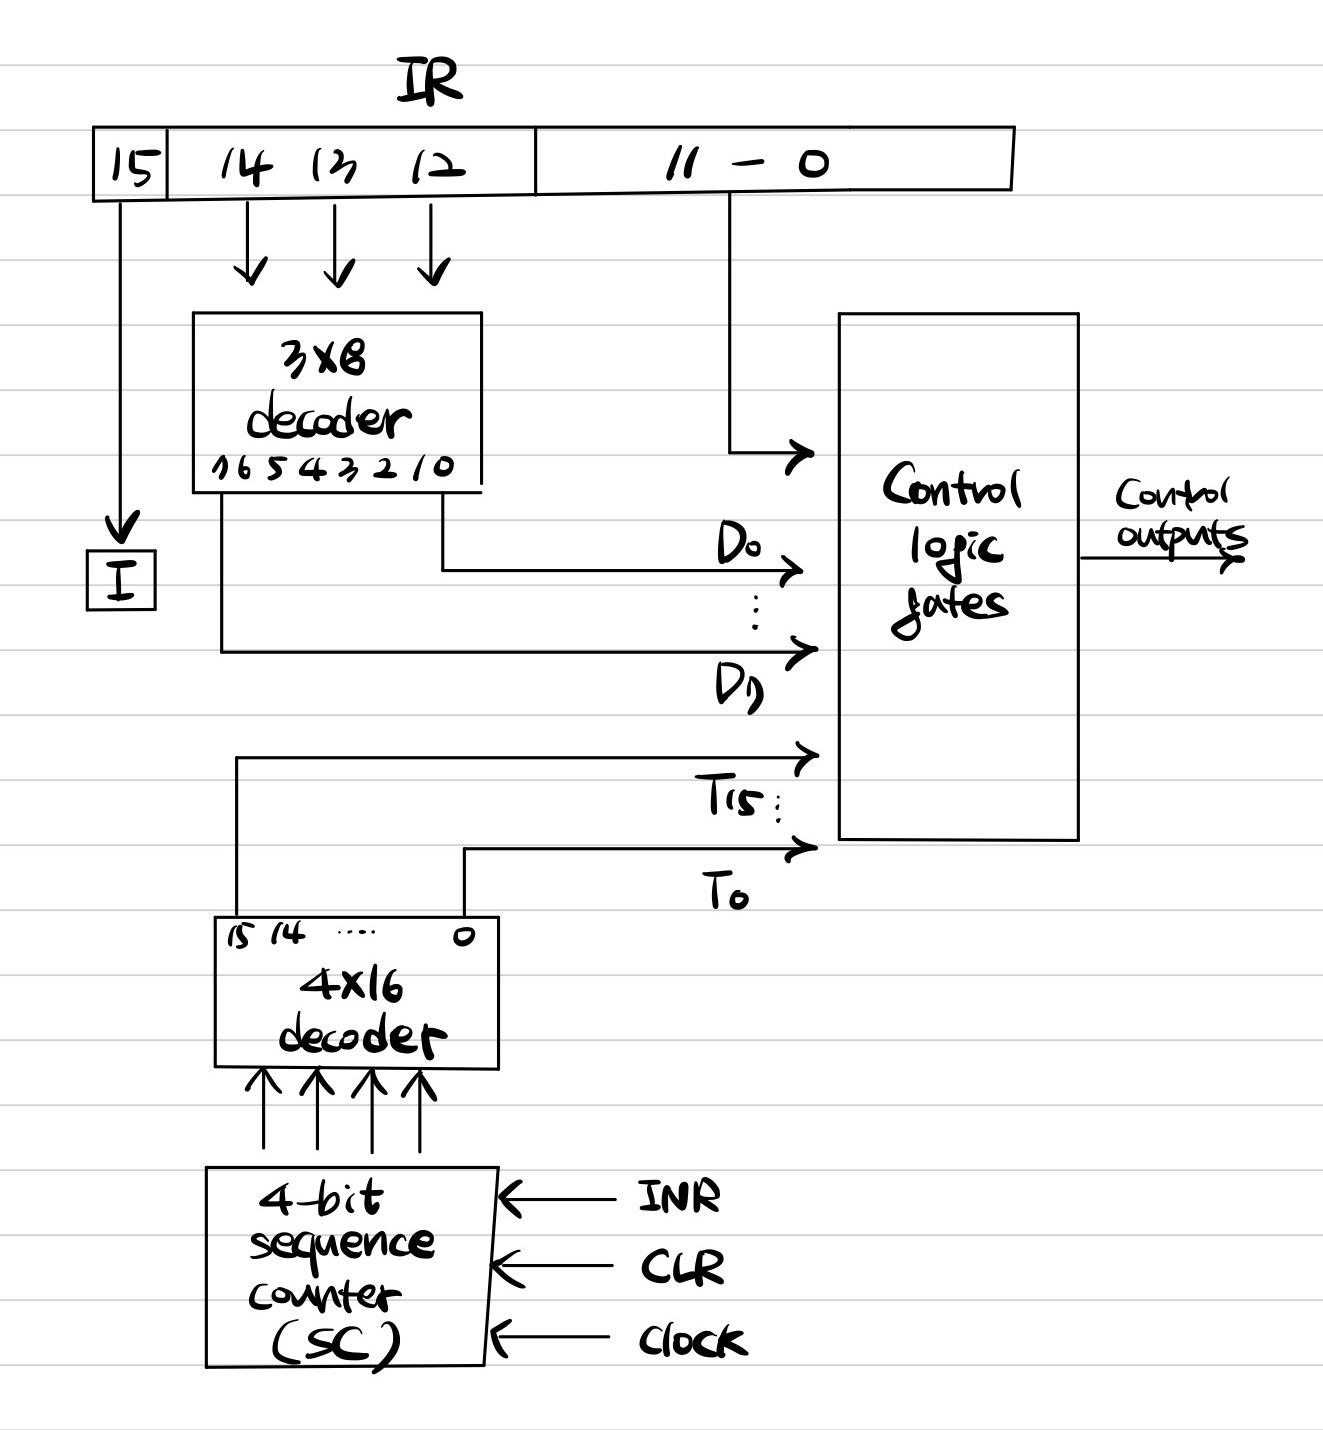 IR
15 14 13 12 11 - 0
3x8
decoder
7 6 5 4 3 2 1 0
Control
logic
gates
Control
outputs
I
D0
⋮
D7
T15
⋮
T0
15 14 ..... 0
4x16
decoder
4-bit
sequence
counter
(SC)
INR
CLR
Clock